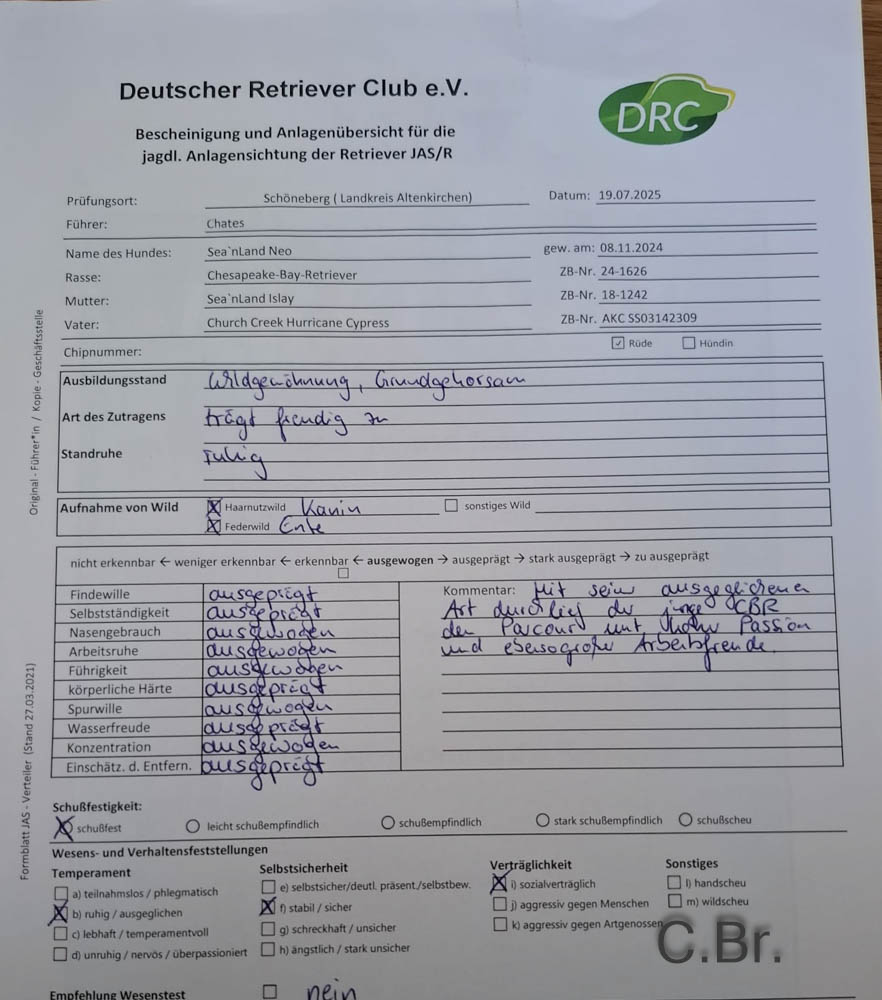 Deutscher Retriever Club e.V.
DRC
Bescheinigung und Anlagenübersicht für die
jagdl. Anlagensichtung der Retriever JAS/R
Prüfungsort: Schöneberg ( Landkreis Altenkirchen) Datum: 19.07.2025
Führer: Chates
Name des Hundes: Sea`nLand Neo gew. am: 08.11.2024
Rasse: Chesapeake-Bay-Retriever ZB-Nr. 24-1626
Mutter: Sea`nLand Islay ZB-Nr. 18-1242
Vater: Church Creek Hurricane Cypress ZB-Nr. AKC SS03142309
Chipnummer: ☑ Rüde ☐ Hündin
Ausbildungsstand Wildgewöhnung, Grundgehorsam
Art des Zutragens trägt freudig zu
Standruhe ruhig
Aufnahme von Wild ☒ Haarnutzwild Kanin ☐ sonstiges Wild
☒ Federwild Ente
nicht erkennbar ← weniger erkennbar ← erkennbar ← ausgewogen → ausgeprägt → stark ausgeprägt → zu ausgeprägt
Findewille ausgeprägt Kommentar: Mit sein ausgeglichener
Selbstständigkeit ausgeprägt Art durchlief der junge CBR
Nasengebrauch ausgewogen den Parcour mit hoher Passion
Arbeitsruhe ausgewogen und ebensogroßer Arbeitsfreude.
Führigkeit ausgewogen
körperliche Härte ausgeprägt
Spurwille ausgewogen
Wasserfreude ausgeprägt
Konzentration ausgewogen
Einschätz. d. Entfern. ausgeprägt
Schußfestigkeit:
☒ schußfest ○ leicht schußempfindlich ○ schußempfindlich ○ stark schußempfindlich ○ schußscheu
Wesens- und Verhaltensfeststellungen
Temperament Selbstsicherheit Verträglichkeit Sonstiges
☐ a) teilnahmslos / phlegmatisch ☐ e) selbstsicher/deutl. präsent./selbstbew. ☒ i) sozialverträglich ☐ l) handscheu
☒ b) ruhig / ausgeglichen ☒ f) stabil / sicher ☐ j) aggressiv gegen Menschen ☐ m) wildscheu
☐ c) lebhaft / temperamentvoll ☐ g) schreckhaft / unsicher ☐ k) aggressiv gegen Artgenossen
☐ d) unruhig / nervös / überpassioniert ☐ h) ängstlich / stark unsicher
Empfehlung Wesenstest ☐ nein
Original - Führer*in / Kopie - Geschäftsstelle
Formblatt JAS - Verteiler (Stand 27.03.2021)
C.Br.